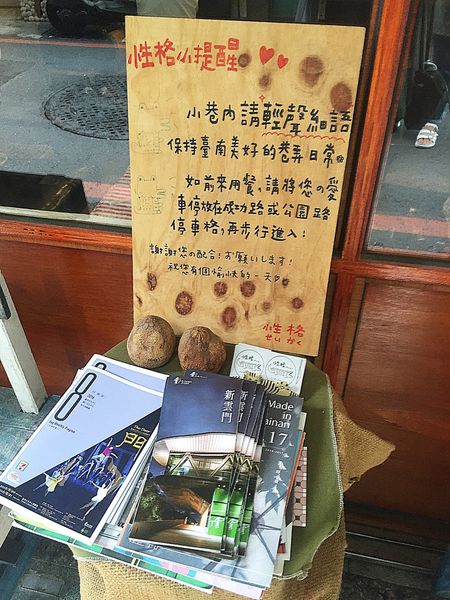 性格小提醒
小巷內請輕聲細語
保持臺南美好的巷弄日常。
如前來用餐，請將您の愛
車停放在成功路或公園路
停車格，再步行進入！
謝謝您の配合！お願いします！
祝您有個愉快的一天
性格
せいかく
8
新雲門
新雲門
Made in
Tainan
17